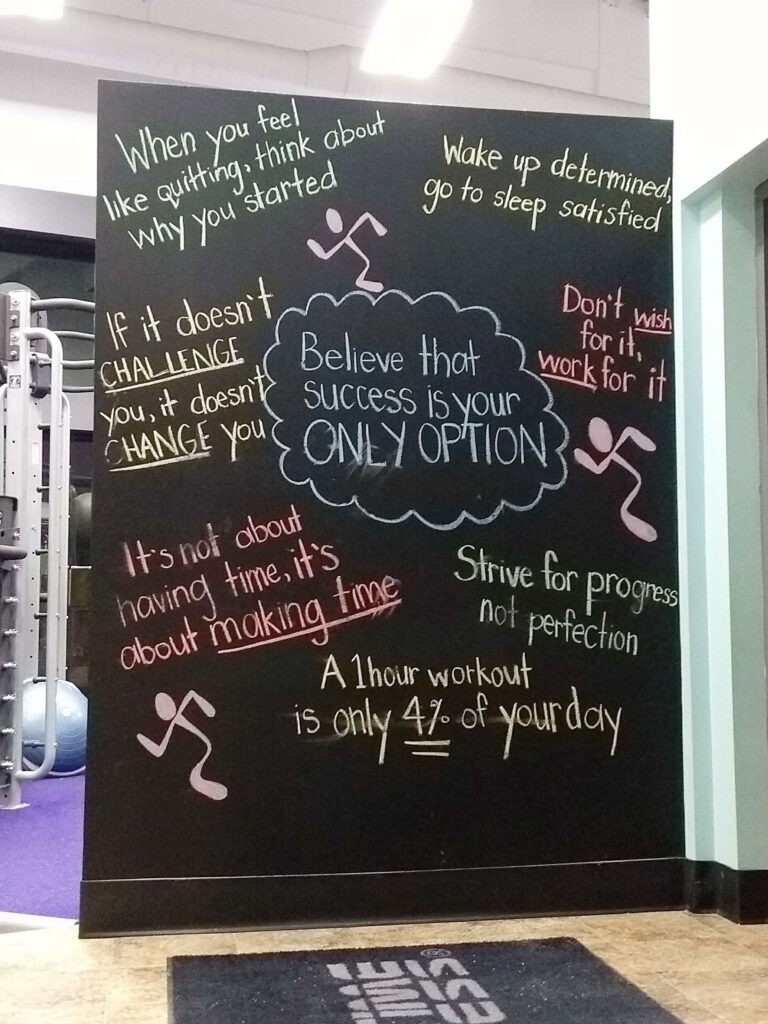 When you feel
like quitting, think about
why you started
Wake up determined,
go to sleep satisfied
If it doesn't
CHALLENGE
you, it doesn't
CHANGE you
Believe that
success is your
ONLY OPTION
Don't wish
for it,
work for it
It's not about
having time, it's
about making time
Strive for progress
not perfection
A 1 hour workout
is only 4% of your day